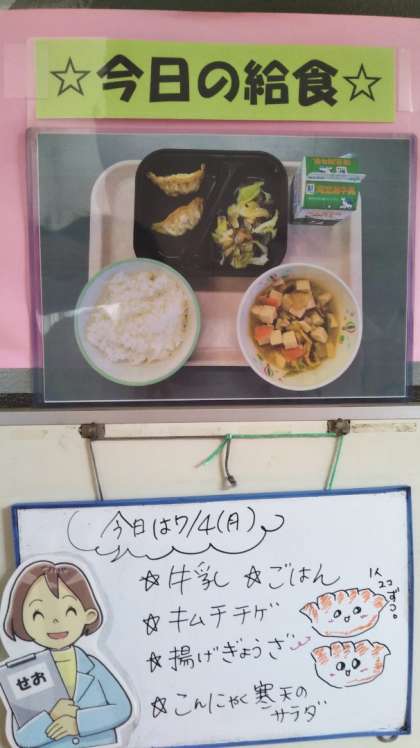 ☆今日の給食☆
今日は7/4(月)
☆牛乳 ☆ごはん
☆キムチチゲ
☆揚げぎょうざ
☆こんにゃく寒天の
サラダ
1人
2コ
ずつ。
せお